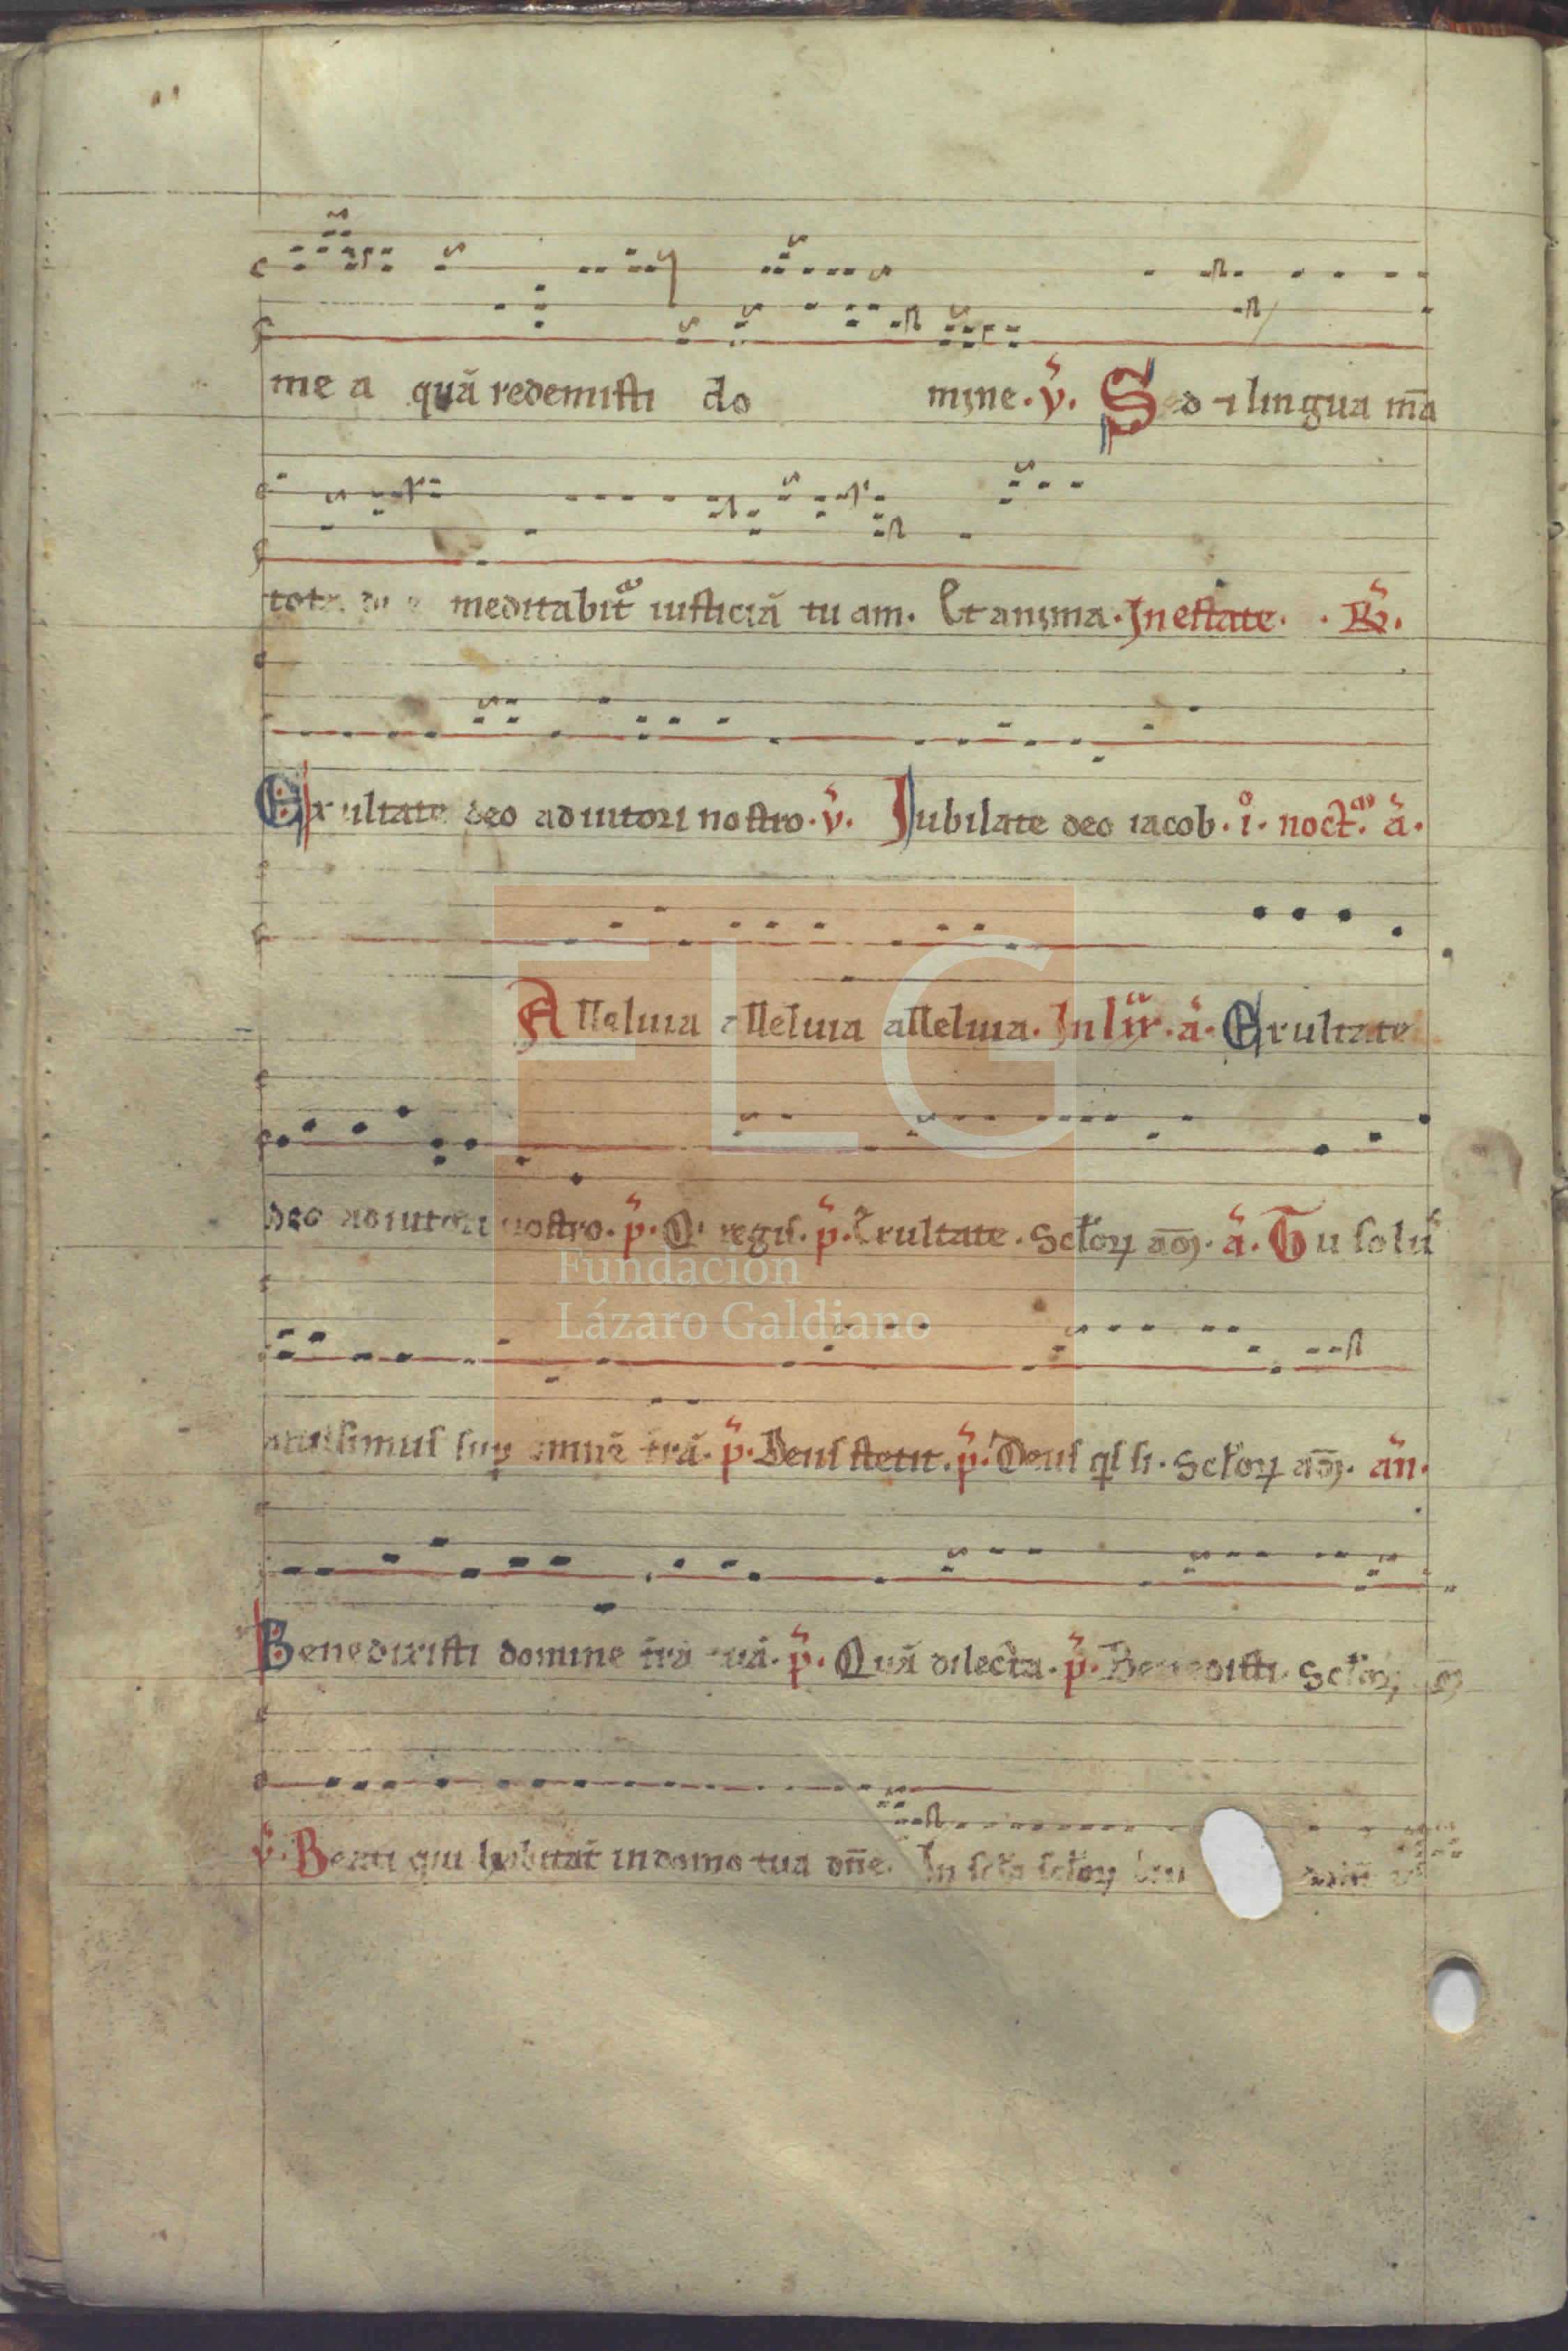 me a quā redemisti do mine. v̄. Sed ⁊ lingua m̄a
tota di e meditabit᷑ iusticiā tu am. Et anima. In estate. R̄.
Exultate deo adiutori nostro. v̄. Iubilate deo iacob. i°. noct. ā.
Alleluia alleluia alleluia. In ā. Exultate
deo adiutori nostro. p̄. regis. p̄. Exultate. ā. Tu solū
altissimus sup omnē t̄rā. p̄. Deus stetit. p̄. Deus qis si. ān.
Benedixisti domine t̄rā tuā. p̄. Quā dilecta. p̄. Benedisti.
v̄. Beati qui habitāt in domo tua dn̄e. In
FLG
Fundación
Lázaro Galdiano